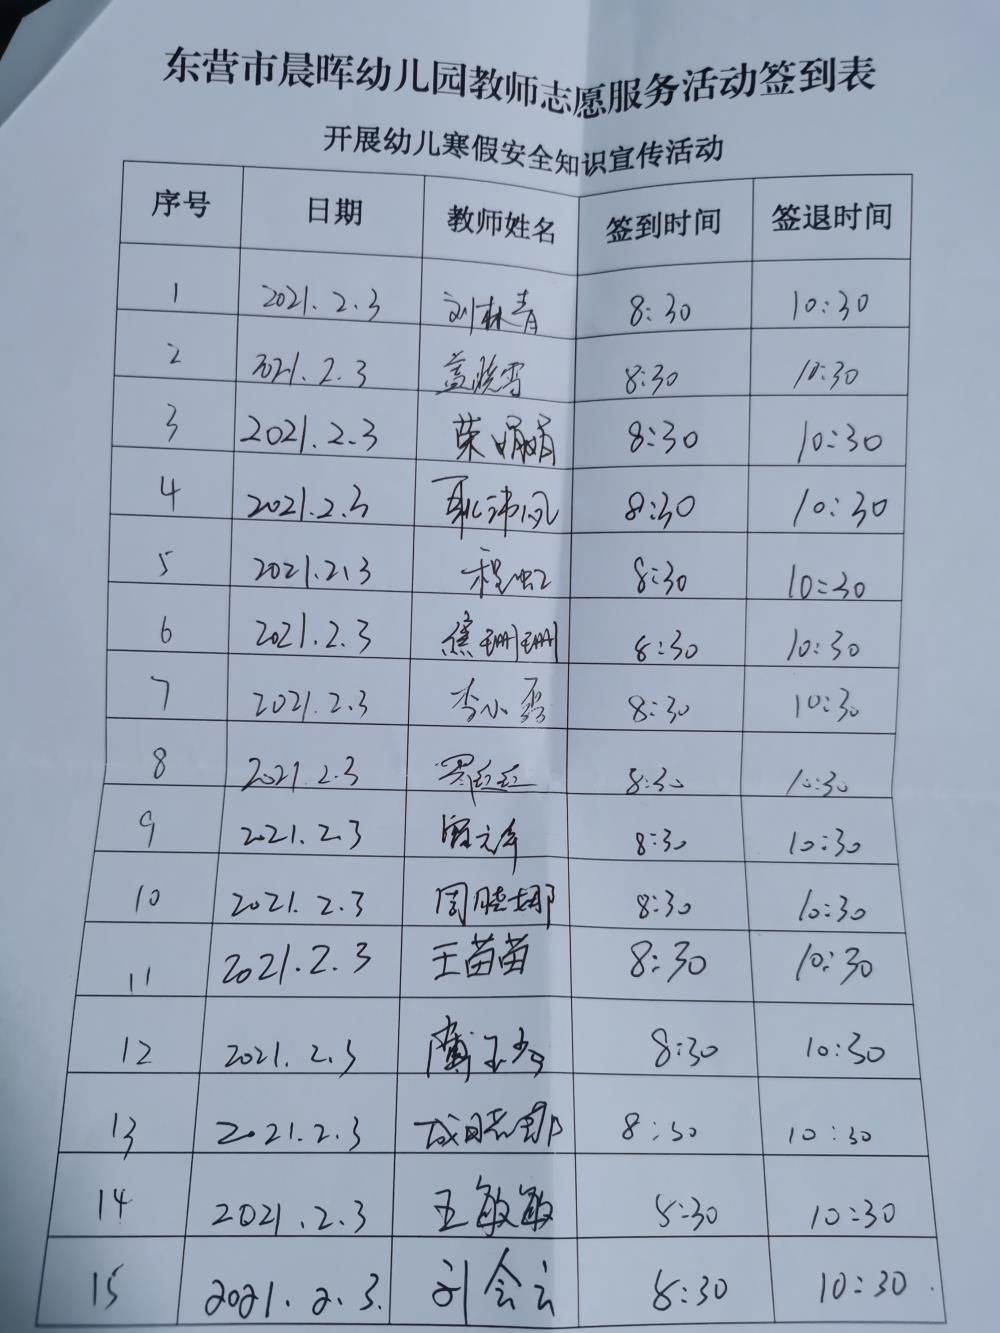 东营市晨晖幼儿园教师志愿服务活动签到表
开展幼儿寒假安全知识宣传活动
序号 日期 教师姓名 签到时间 签退时间
1 2021.2.3 刘林青 8:30 10:30
2 2021.2.3 盖晓雪 8:30 10:30
3 2021.2.3 荣娟娟 8:30 10:30
4 2021.2.3 8:30 10:30
5 2021.2.3 程虹 8:30 10:30
6 2021.2.3 焦珊珊 8:30 10:30
7 2021.2.3 李小磊 8:30 10:30
8 2021.2.3 8:30 10:30
9 2021.2.3 8:30 10:30
10 2021.2.3 周晓娜 8:30 10:30
11 2021.2.3 王苗苗 8:30 10:30
12 2021.2.3 8:30 10:30
13 2021.2.3 成晓娜 8:30 10:30
14 2021.2.3 王敏敏 8:30 10:30
15 2021.2.3. 刘会云 8:30 10:30